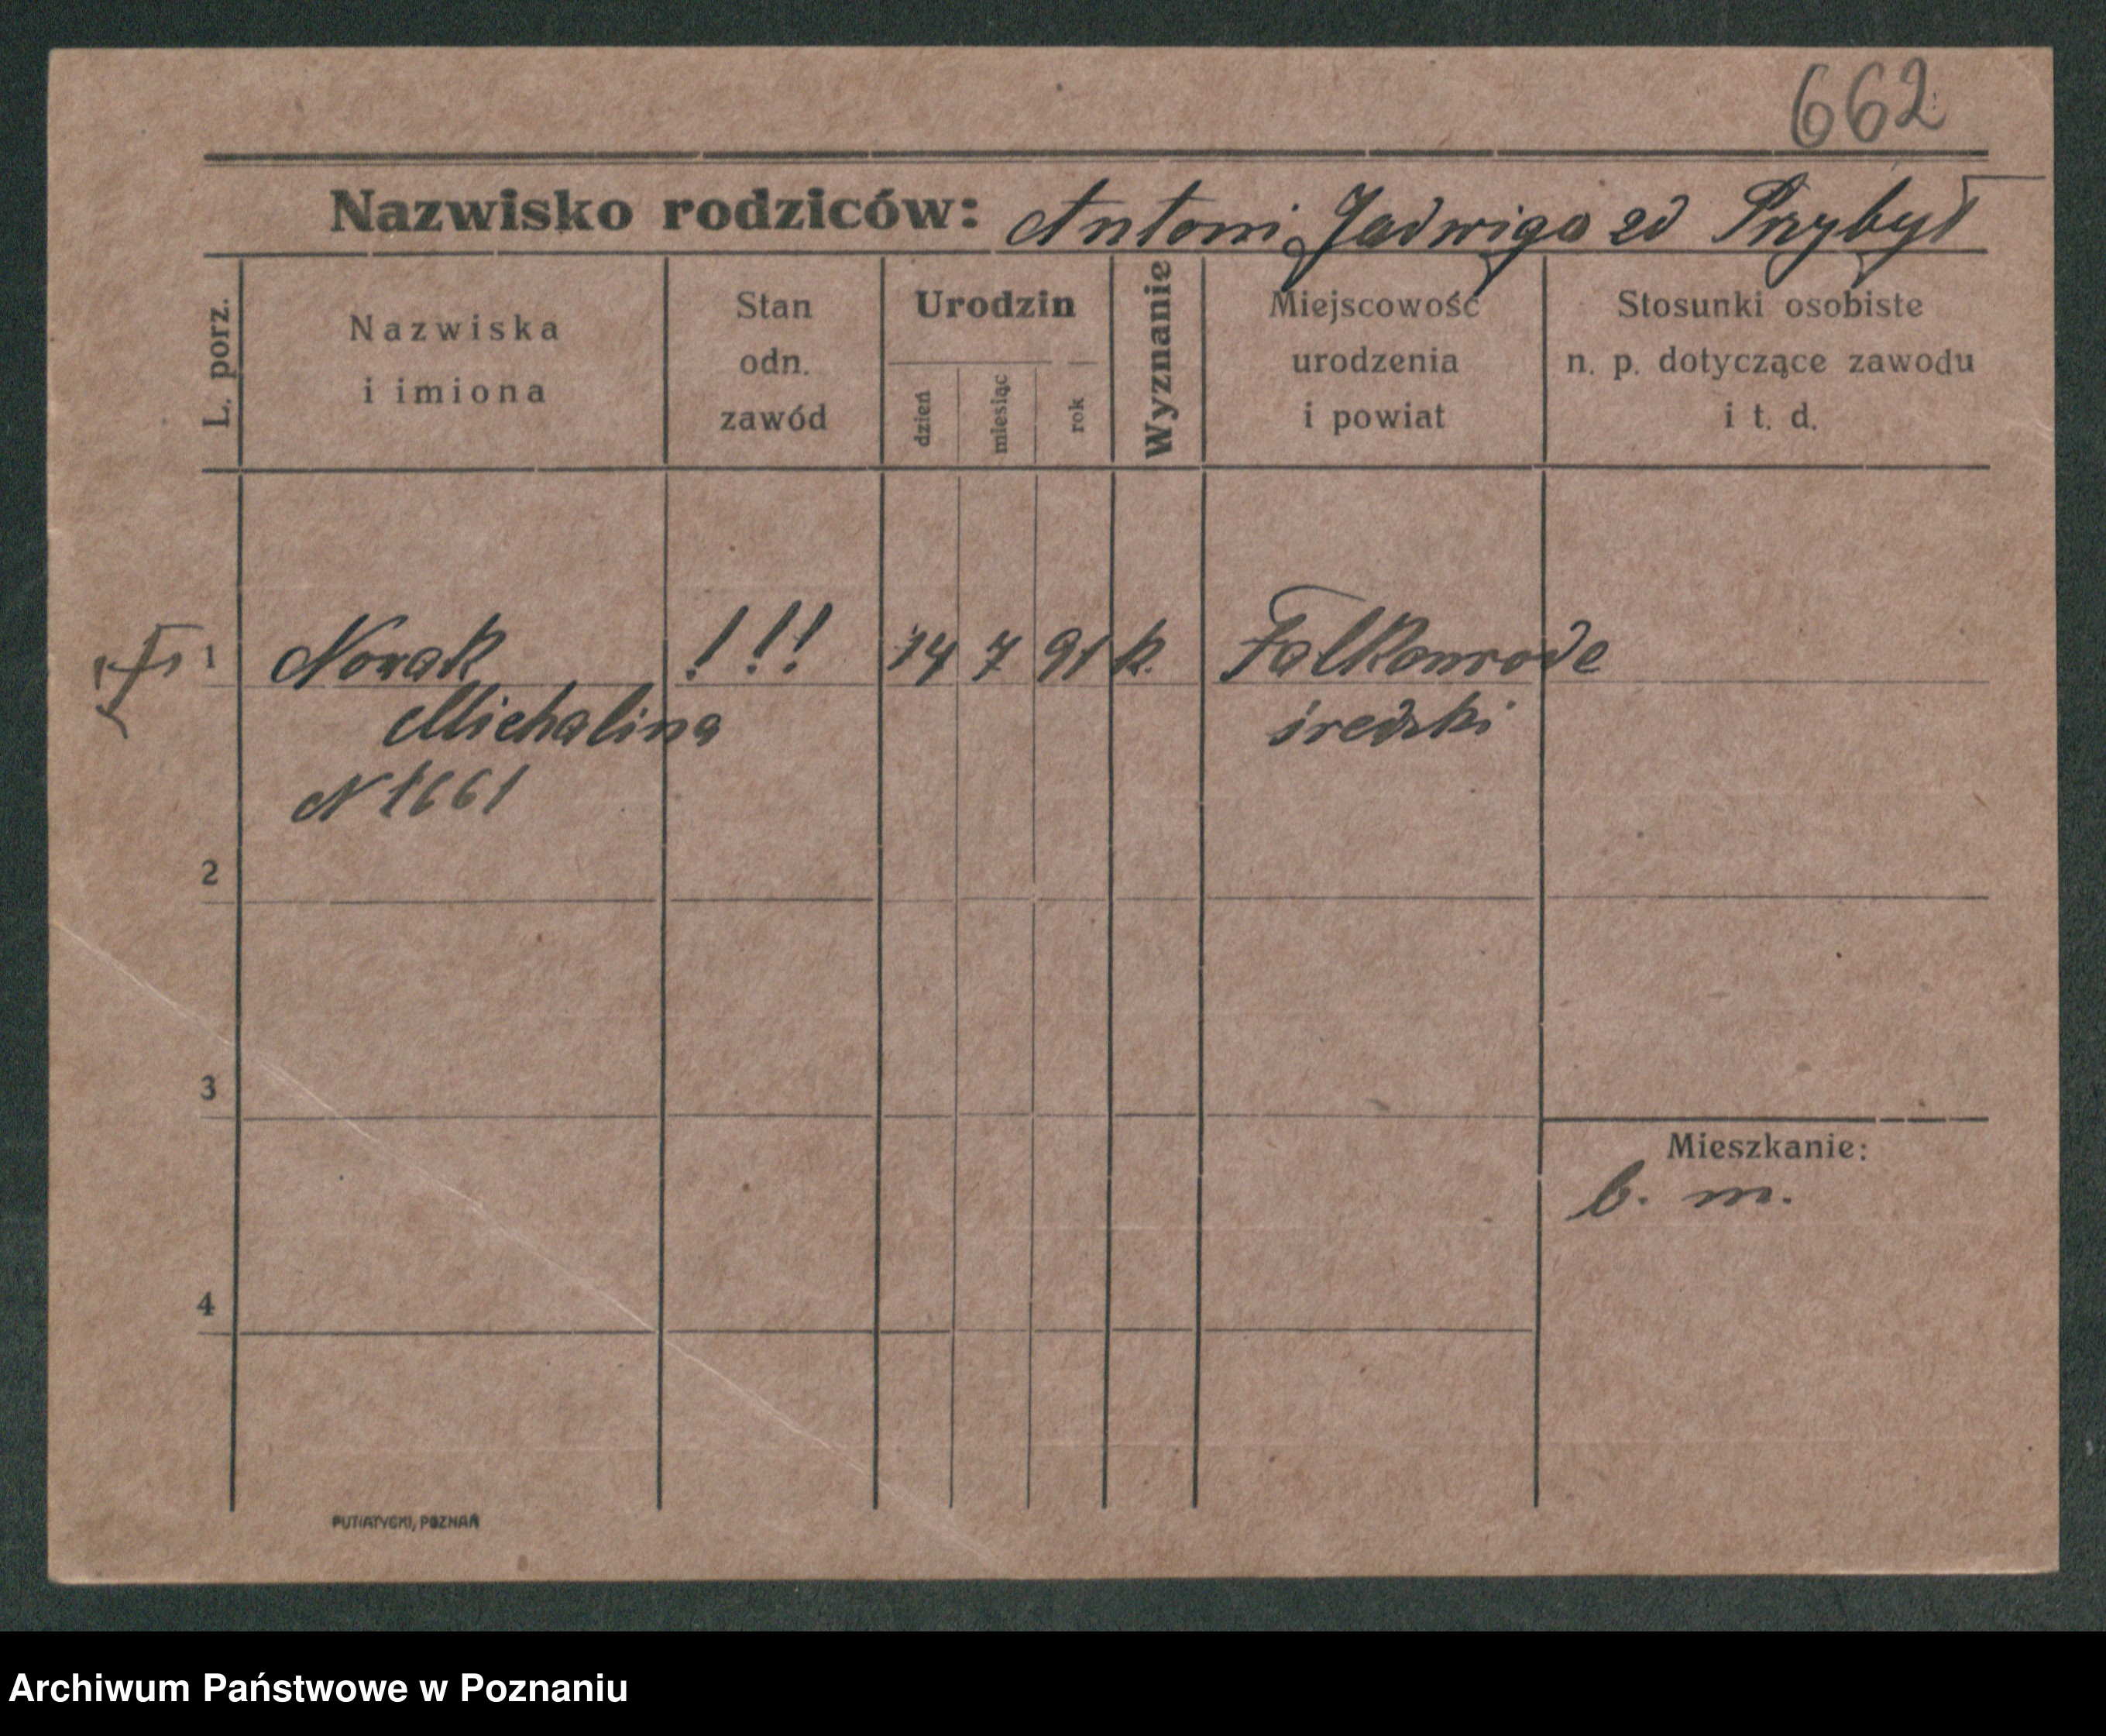 662
Nazwisko rodziców: Antoni, Jadwiga zd Przybył
L. porz.
Nazwiska
i imiona
Stan
odn.
zawód
Urodzin
dzień
miesiąc
rok
Wyznanie
Miejscowość
urodzenia
i powiat
Stosunki osobiste
n. p. dotyczące zawodu
i t. d.
1 Nowak !!! 14 7 91 k. Falkonrode
Michalina średzki
N 1661
2
3
Mieszkanie:
b. m.
4
PUTIATYCKI, POZNAŃ
Archiwum Państwowe w Poznaniu